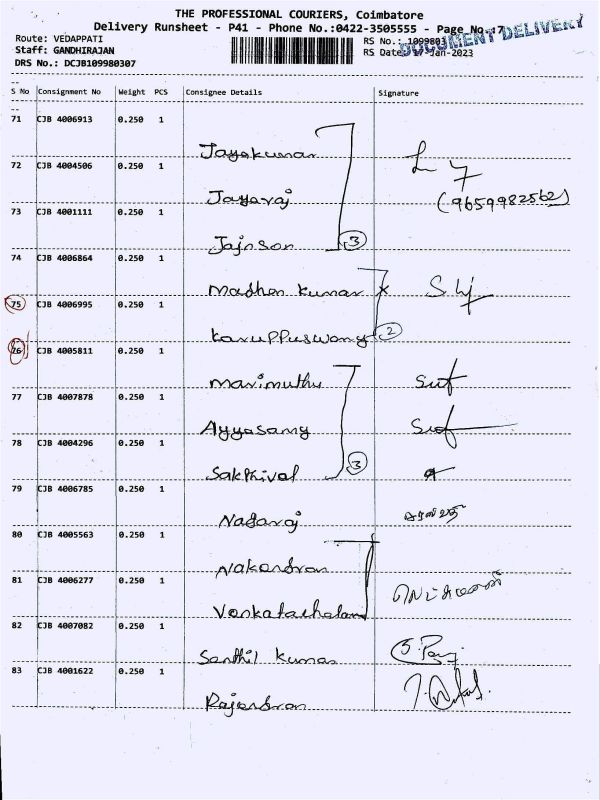 THE PROFESSIONAL COURIERS, Coimbatore
Delivery Runsheet - P41 - Phone No.:0422-3505555 - Page No.:7
Route: VEDAPPATI
Staff: GANDHIRAJAN
DRS No.: DCJB109980307
RS No.: 1099803
RS Date: 17-Jan-2023
DOCUMENT DELIVERY
S No Consignment No Weight PCS Consignee Details Signature
71 CJB 4006913 0.250 1
Jayakumar
72 CJB 4004506 0.250 1
(9659982562)
Jayaraj
73 CJB 4001111 0.250 1
Jajnson 3
74 CJB 4006864 0.250 1
Madhan kumar
75 CJB 4006995 0.250 1
Karuppuswamy 2
76 CJB 4005811 0.250 1
Marimuthu
77 CJB 4007878 0.250 1
Ayyasamy
78 CJB 4004296 0.250 1
Sakthivel 3
79 CJB 4006785 0.250 1
Nagaraj
80 CJB 4005563 0.250 1
Nakendran
81 CJB 4006277 0.250 1
Venkatachalam
82 CJB 4007082 0.250 1
Senthil kumar
83 CJB 4001622 0.250 1
Rajendran